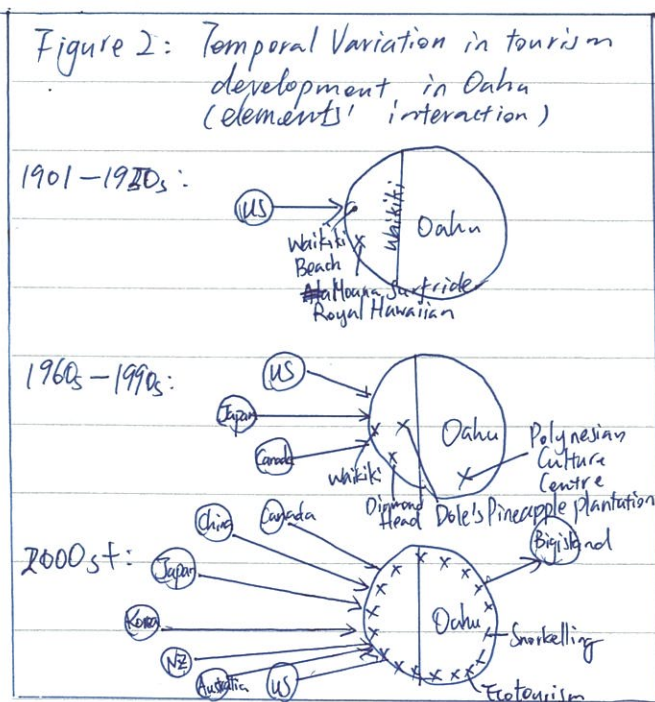 Figure 2: Temporal Variation in tourism
development in Oahu
(elements' interaction)
1901-1920s:
US
Waikiki
Oahu
Waikiki
Beach
Moana Surfride
Royal Hawaiian
1960s-1990s:
US
Japan
Canada
Oahu
Waikiki
Diamond
Head
Dole's Pineapple plantation
Polynesian
Culture
Centre
2000s+:
China
Canada
Japan
Korea
NZ
Australia
US
Oahu
Big island
Snorkelling
Ecotourism